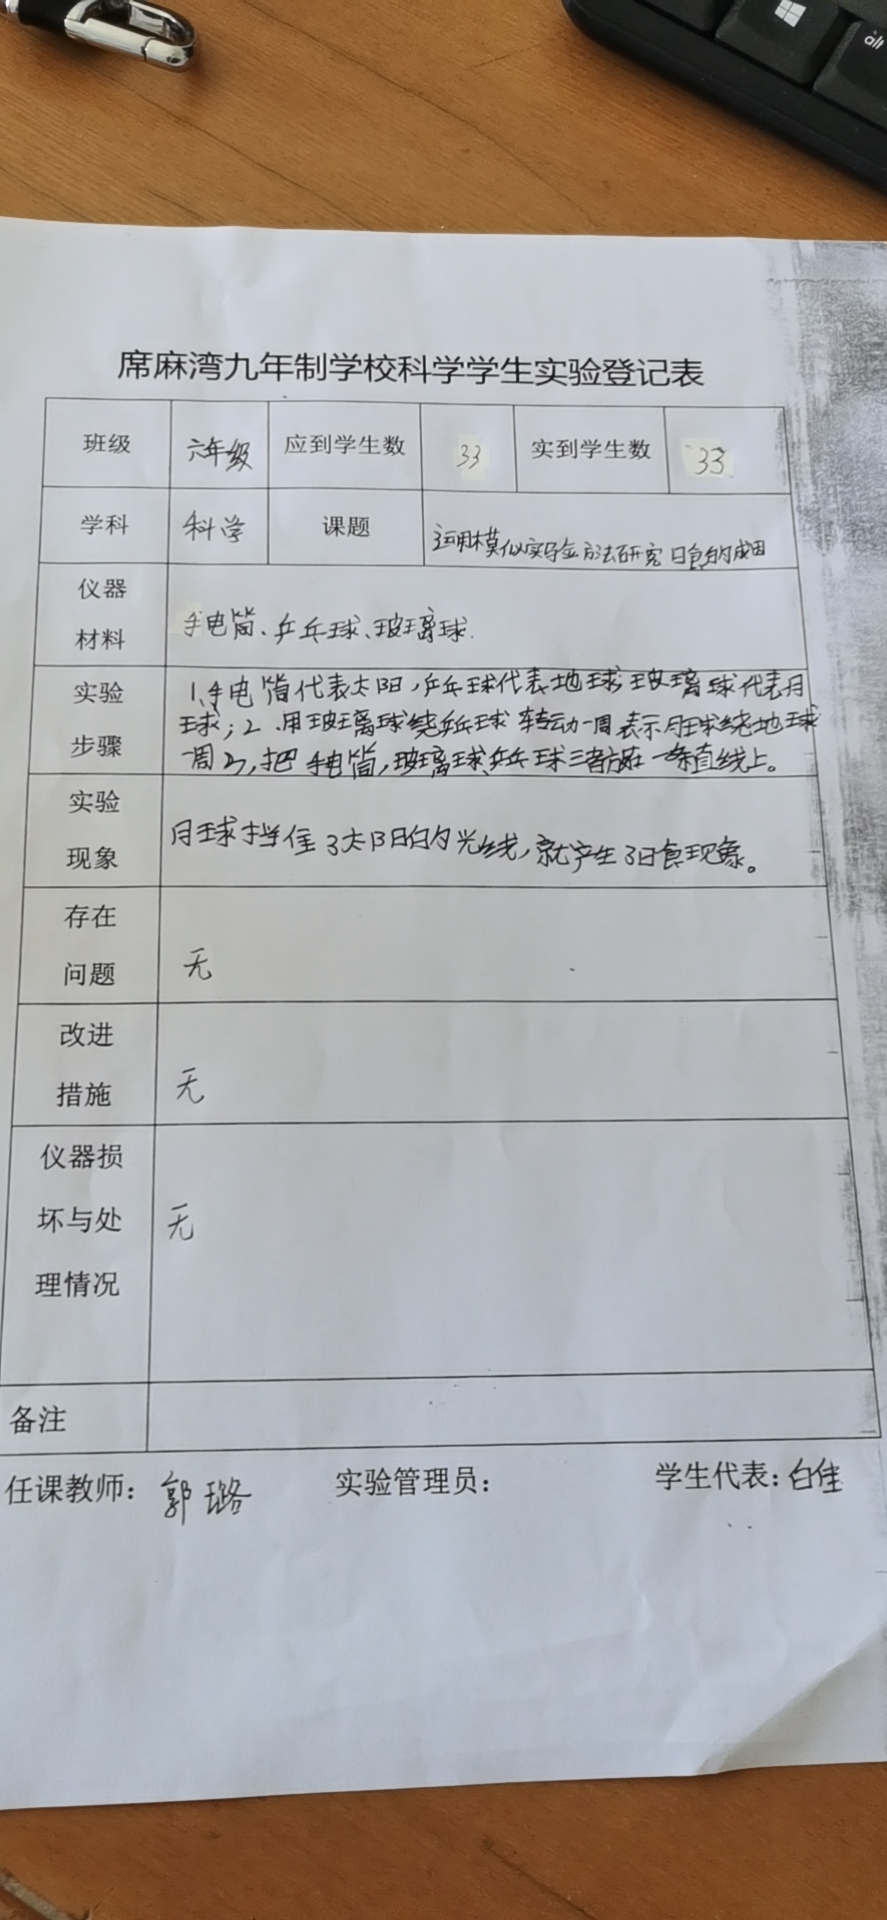 alt
席麻湾九年制学校科学学生实验登记表
班级 六年级 应到学生数 33 实到学生数 33
学科 科学 课题 运用模似实验方法研究日食的成因
仪器
材料
手电筒、乒乓球、玻璃球.
实验
步骤
1、手电筒代表太阳,乒乓球代表地球 玻璃球代表月
球;2、用玻璃球绕乒乓球转动一周表示月球绕地球
一周3,把手电筒,玻璃球、乒乓球三者放在一条直线上。
实验
现象
月球挡住了太阳的光线,就产生了日食现象。
存在
问题
无
改进
措施
无
仪器损
坏与处
理情况
无
备注
任课教师:郭璐 实验管理员: 学生代表:白佳